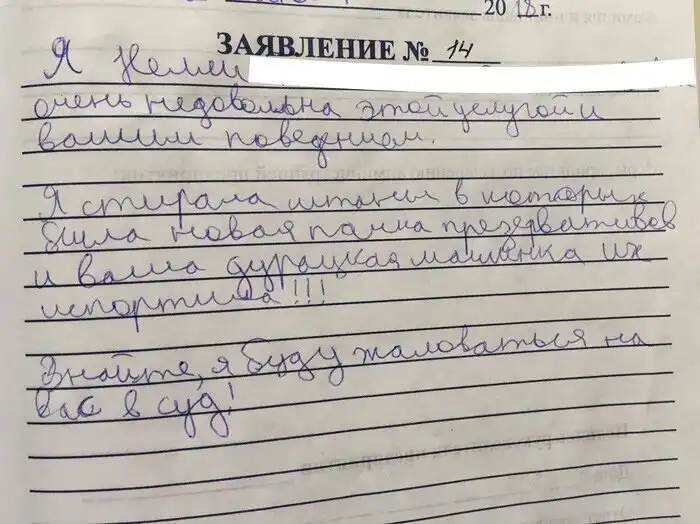 2018 г.
ЗАЯВЛЕНИЕ № 14
Я Нелли
очень недовольна этой услугой и
вашим поведением.
Я стирала штаны в которых
была новая пачка презервативов
и ваша дурацкая машинка их
испортила!!!
Знайте, я буду жаловаться на
вас в суд!